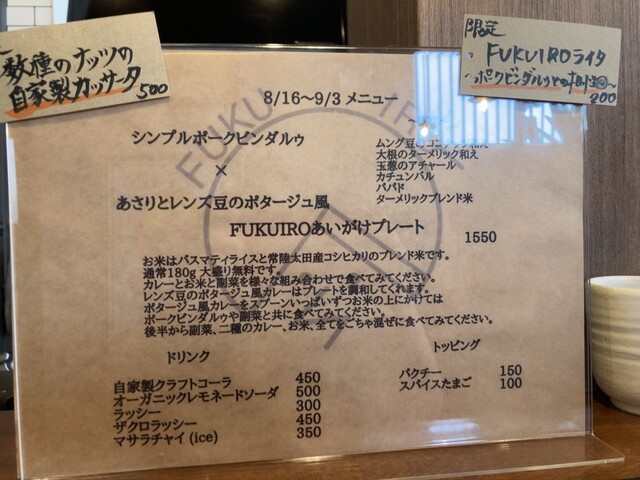 数種のナッツの
自家製カッサータ
500
限定
・FUKUIROライタ
ポークビンダルゥとの相性◎〜
200
8/16〜9/3 メニュー
FUKU
シンプルポークビンダルゥ
×
あさりとレンズ豆のポタージュ風
FUKUIROあいがけプレート
1550
ムング豆の
大根のターメリック和え
玉葱のアチャール
カチュンバル
パパド
ターメリックブレンド米
お米はバスマティライスと常陸太田産コシヒカリのブレンド米です。
通常180g 大盛り無料です。
カレーとお米と副菜を様々な組み合わせで食べてみてください。
レンズ豆のポタージュ風カレーはプレートを調和してくれます。
ポタージュ風カレーをスプーンいっぱいずつお米の上にかけては
ポークビンダルゥや副菜と共に食べてみてください。
後半から副菜、二種のカレー、お米、全てをごちゃ混ぜに食べてみてください。
ドリンク
自家製クラフトコーラ 450
オーガニックレモネードソーダ 500
ラッシー 300
ザクロラッシー 450
マサラチャイ (ice) 350
トッピング
パクチー 150
スパイスたまご 100